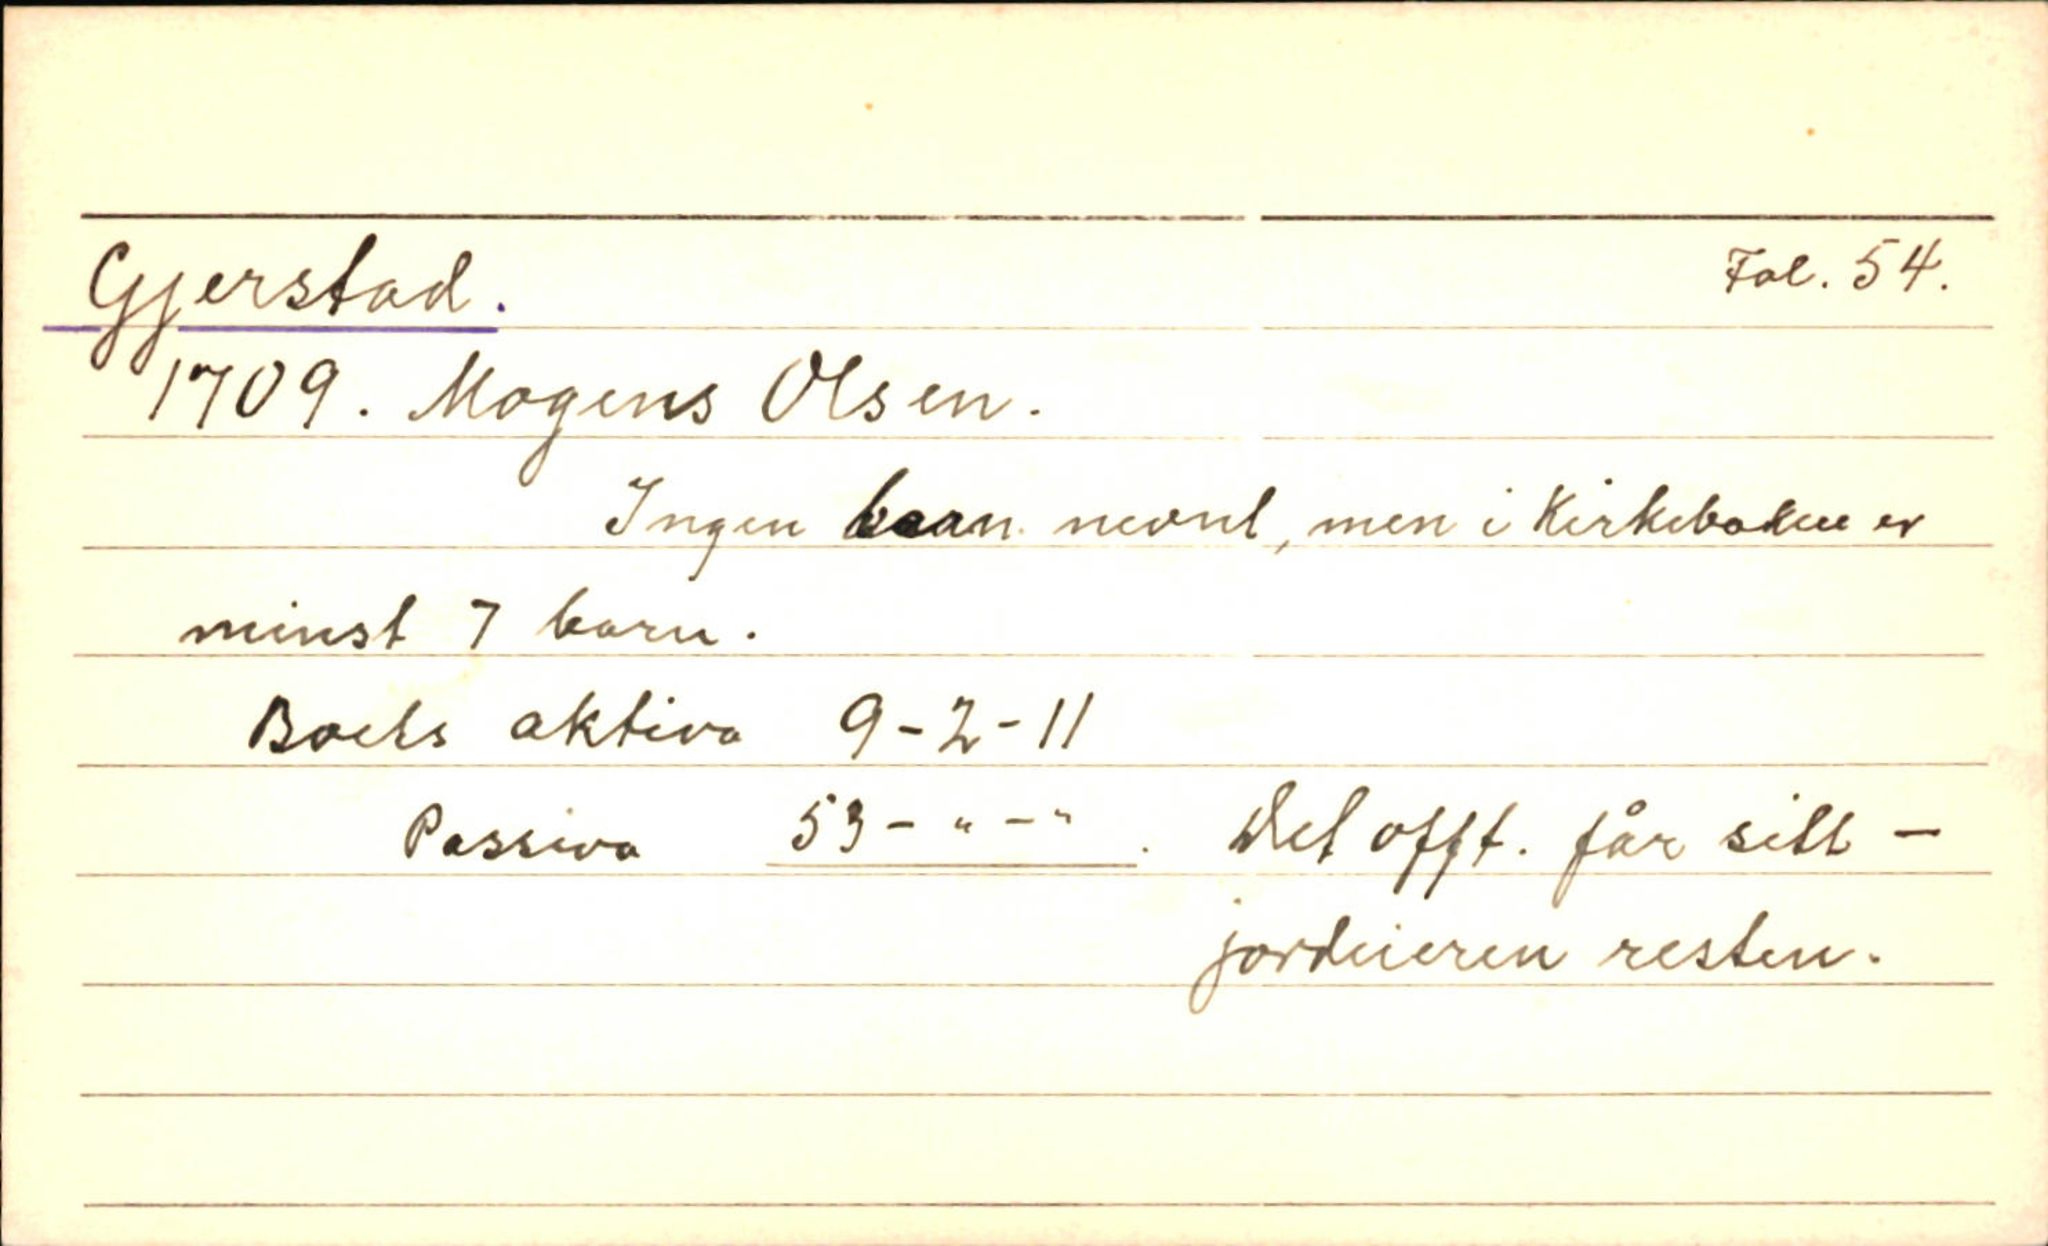 Gjerstad. Fol. 54.
1709. Mogens Olsen.
Ingen barn nevnt, men i Kirkeboken er
minst 7 barn.
Boets aktiva 9-2-11
Passiva 53-"-". Det offt. får sitt -
jordeieren resten.